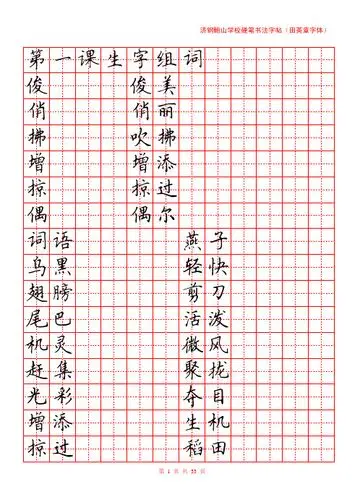 济钢鲍山学校硬笔书法字帖（田英章字体）
第一课生字组词
俊 俊美
俏 俏丽
拂 吹拂
增 增添
掠 掠过
偶 偶尔
词语 燕子
乌黑 轻快
翅膀 剪刀
尾巴 活泼
机灵 微风
赶集 聚拢
光彩 夺目
增添 生机
掠过 稻田
第 1 页 共 55 页